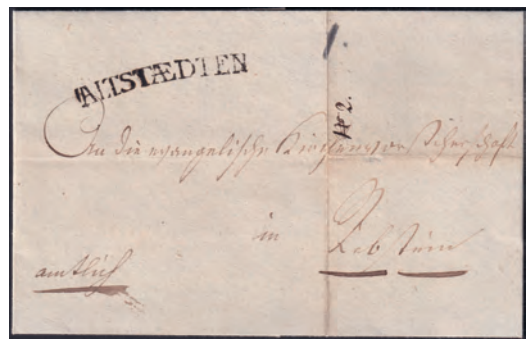 ALTSTÆDTEN
1.
N 2.
An die evangelische Kirchenvorsteherschaft
in Rebstein
amtlich